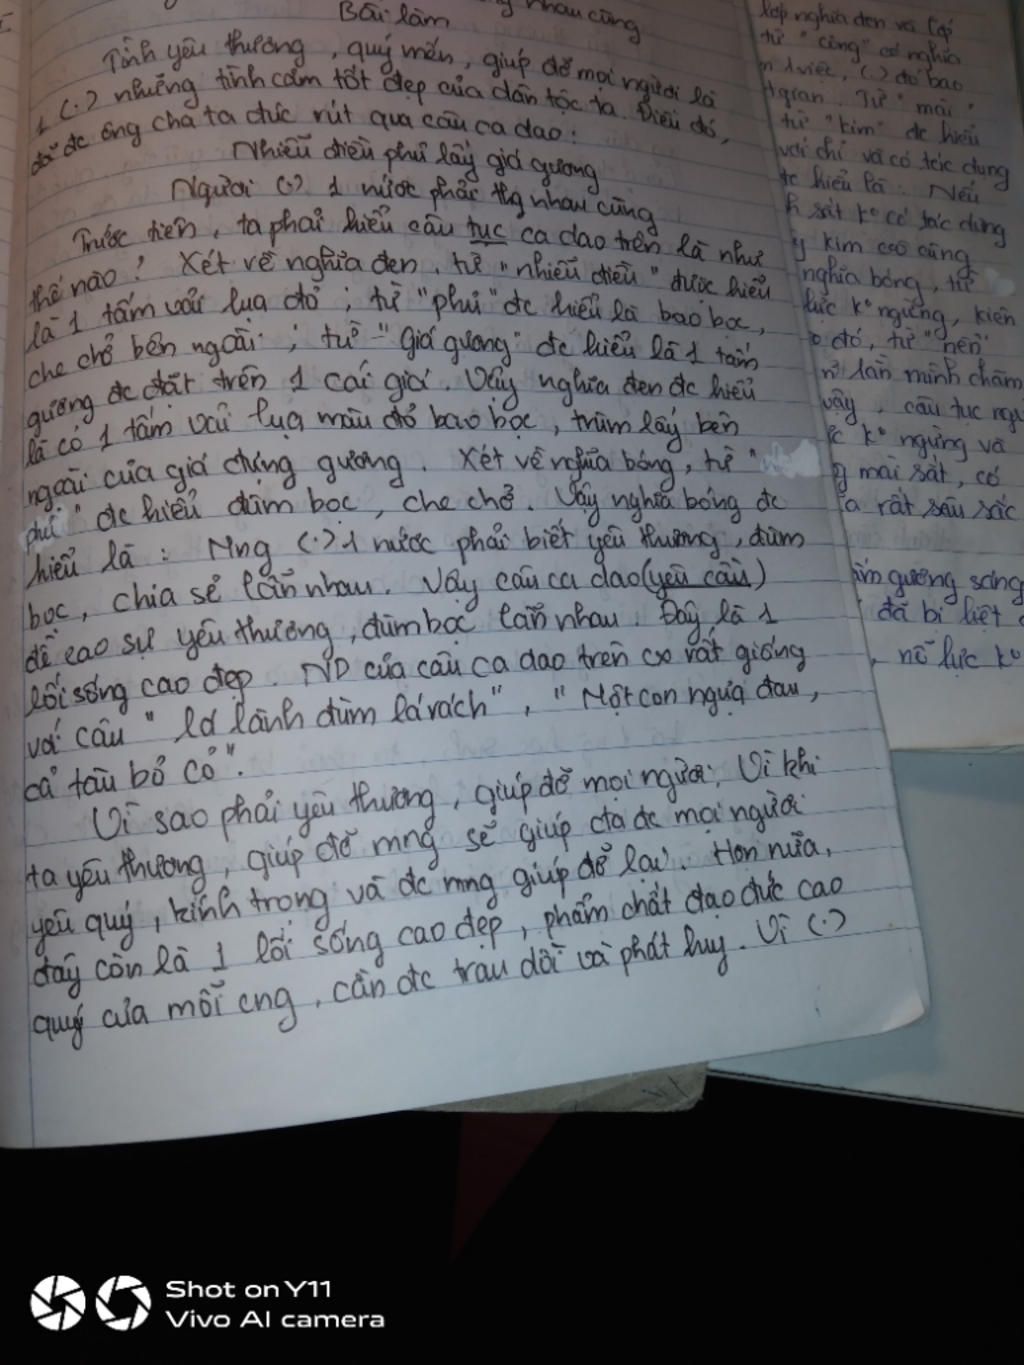 nhau cùng
Bài làm
Tình yêu thương, quý mến, giúp đỡ mọi người là
1 (.) những tình cảm tốt đẹp của dân tộc ta. Điều đó,
đã đc ông cha ta đúc rút qua câu ca dao:
Nhiễu điều phủ lấy giá gương
Người (.) 1 nước phải thg nhau cùng
Trước tiên, ta phải hiểu câu tục ca dao trên là như
thế nào? Xét về nghĩa đen, từ "nhiễu điều" được hiểu
là 1 tấm vải lụa đỏ; từ "phủ" đc hiểu là bao bọc,
che chở bên ngoài; từ "Giá gương" đc hiểu là 1 tấm
gương đc đặt trên 1 cái giá. Vậy nghĩa đen đc hiểu
là có 1 tấm vải lụa màu đỏ bao bọc, trùm lấy bên
ngoài của giá đựng gương. Xét về nghĩa bóng, từ "
phủ" đc hiểu đùm bọc, che chở. Vậy nghĩa bóng đc
hiểu là: Mng (.) 1 nước phải biết yêu thương, đùm
bọc, chia sẻ lẫn nhau. Vậy câu ca dao (yêu cầu)
đề cao sự yêu thương, đùm bọc lẫn nhau. Đây là 1
lối sống cao đẹp. ND của câu ca dao trên rất giống
với câu "lá lành đùm lá rách", "Một con ngựa đau,
cả tàu bỏ cỏ".
Vì sao phải yêu thương, giúp đỡ mọi người? Vì khi
ta yêu thương, giúp đỡ mng sẽ giúp ta đc mọi người
yêu quý, kính trọng và đc mng giúp đỡ lại. Hơn nữa,
đây còn là 1 lối sống cao đẹp, phẩm chất đạo đức cao
quý của mỗi cng, cần đc trau dồi và phát huy. Vì (.)
lớp nghĩa đen và lớp
từ "công" có nghĩa
việc, (.) đó bao
gian. Từ "mài"
từ "kim" đc hiểu
với chỉ và có tác dụng
đc hiểu là: Nếu
sắt kº có tác dụng
kim cũng
nghĩa bóng, từ
lực kº ngừng, kiên
đó, từ "nên"
lần mình chăm
vậy, câu tục ngữ
kº ngừng và
mài sắt, có
rất sâu sắc
gương sáng
đã bị liệt
nỗ lực kº
Shot on Y11
Vivo AI camera